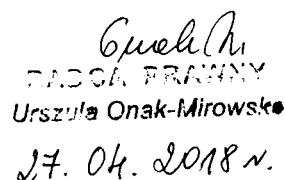 RADCA PRAWNY
Urszula Onak-Mirowska
27. 04. 2018 r.